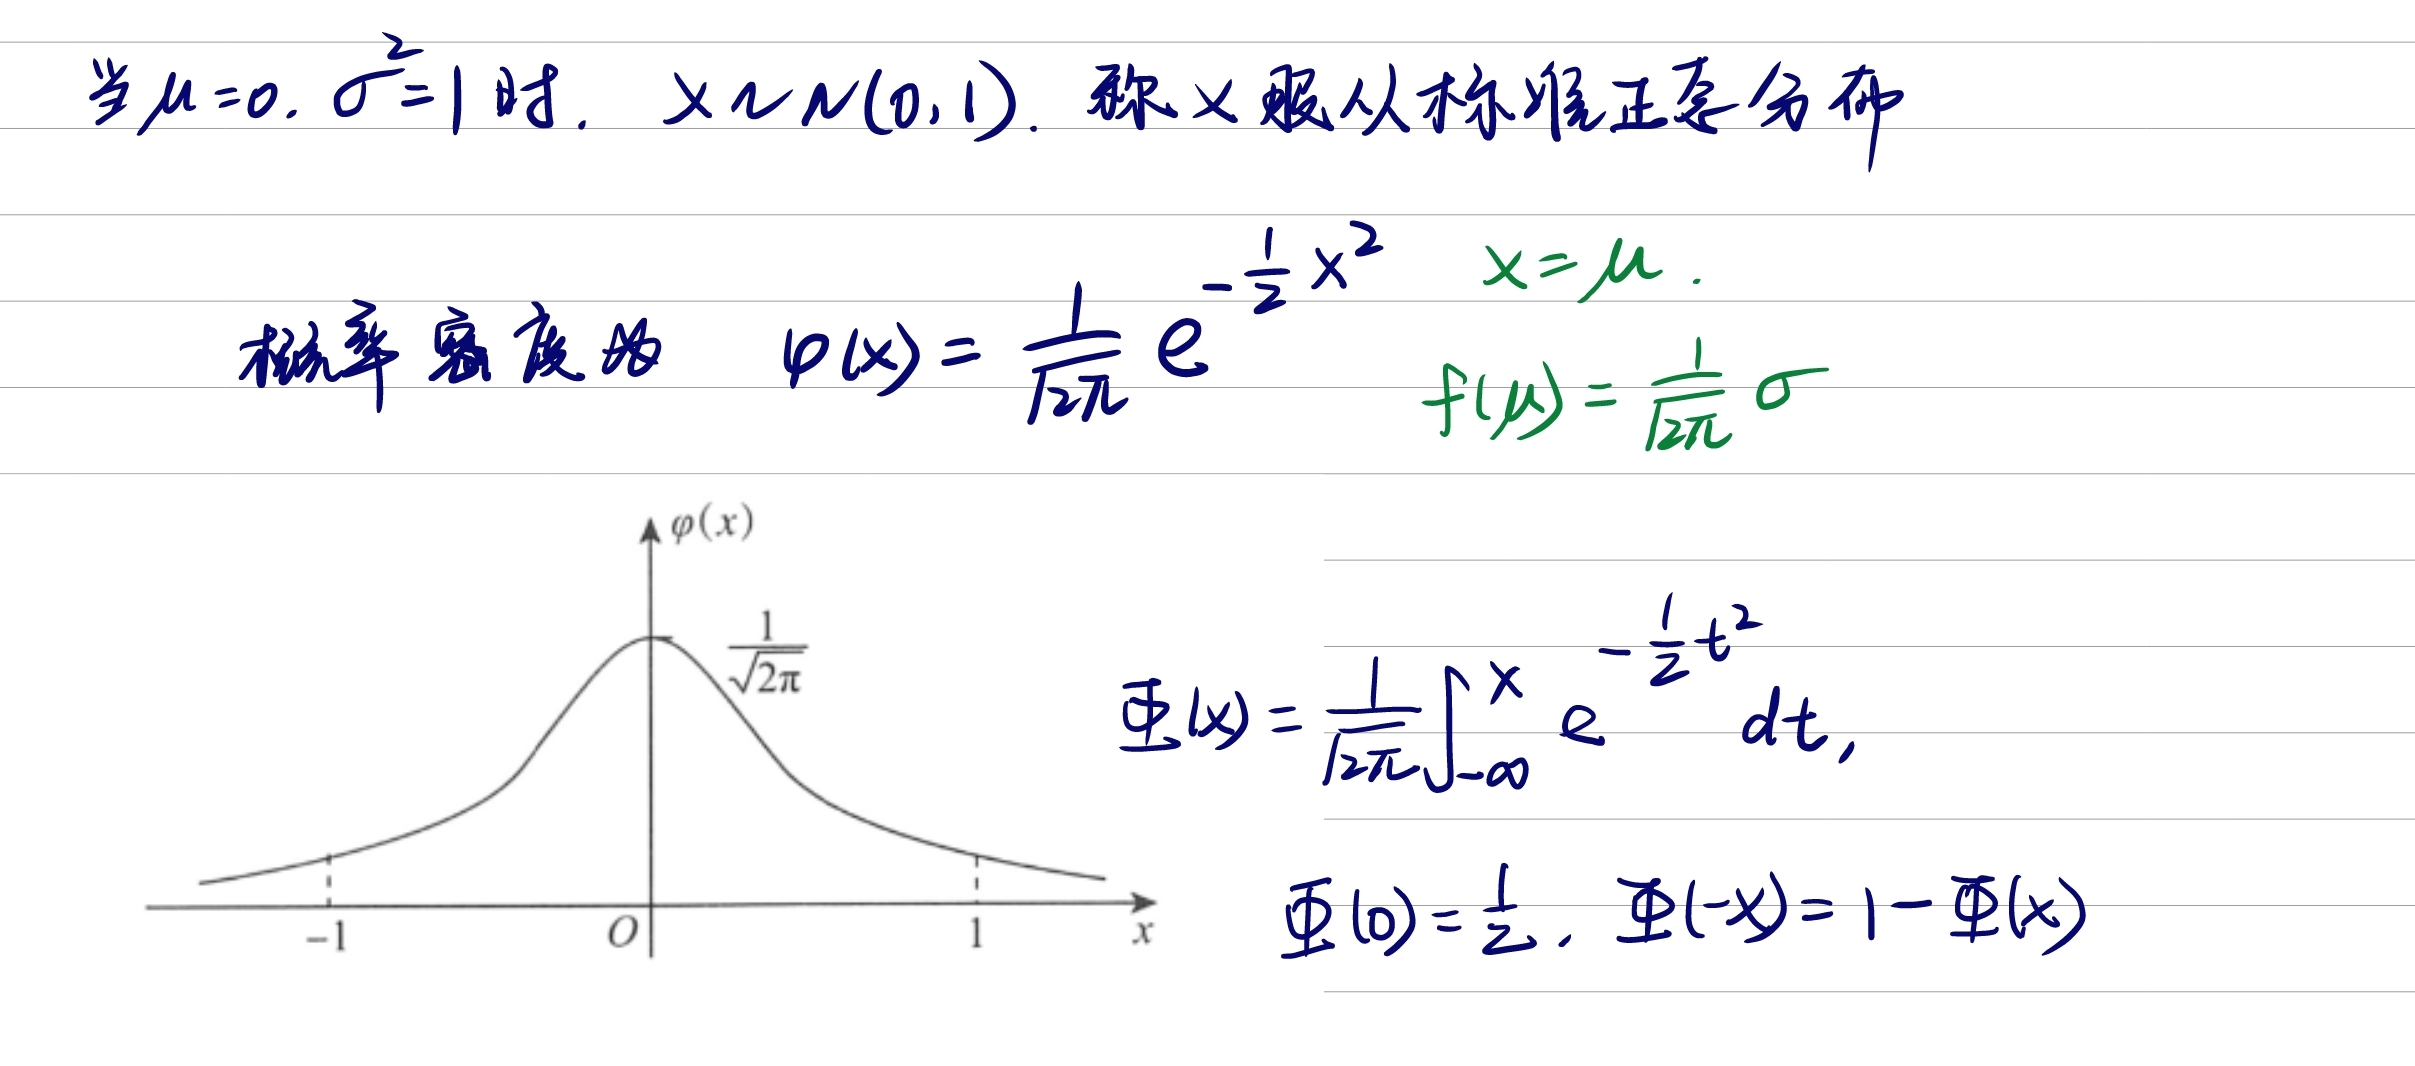 当μ=0. σ²=1时. X~N(0,1). 称X服从标准正态分布
概率密度为 φ(x)=\frac{1}{\sqrt{2π}}e^{-\frac{1}{2}x^2}
x=μ.
f(μ)=\frac{1}{\sqrt{2π}}σ
φ(x)
\frac{1}{\sqrt{2π}}
-1 O 1 x
Φ(x)=\frac{1}{\sqrt{2π}}\int_{-∞}^{x}e^{-\frac{1}{2}t^2}dt,
Φ(0)=\frac{1}{2}, Φ(-x)=1-Φ(x)